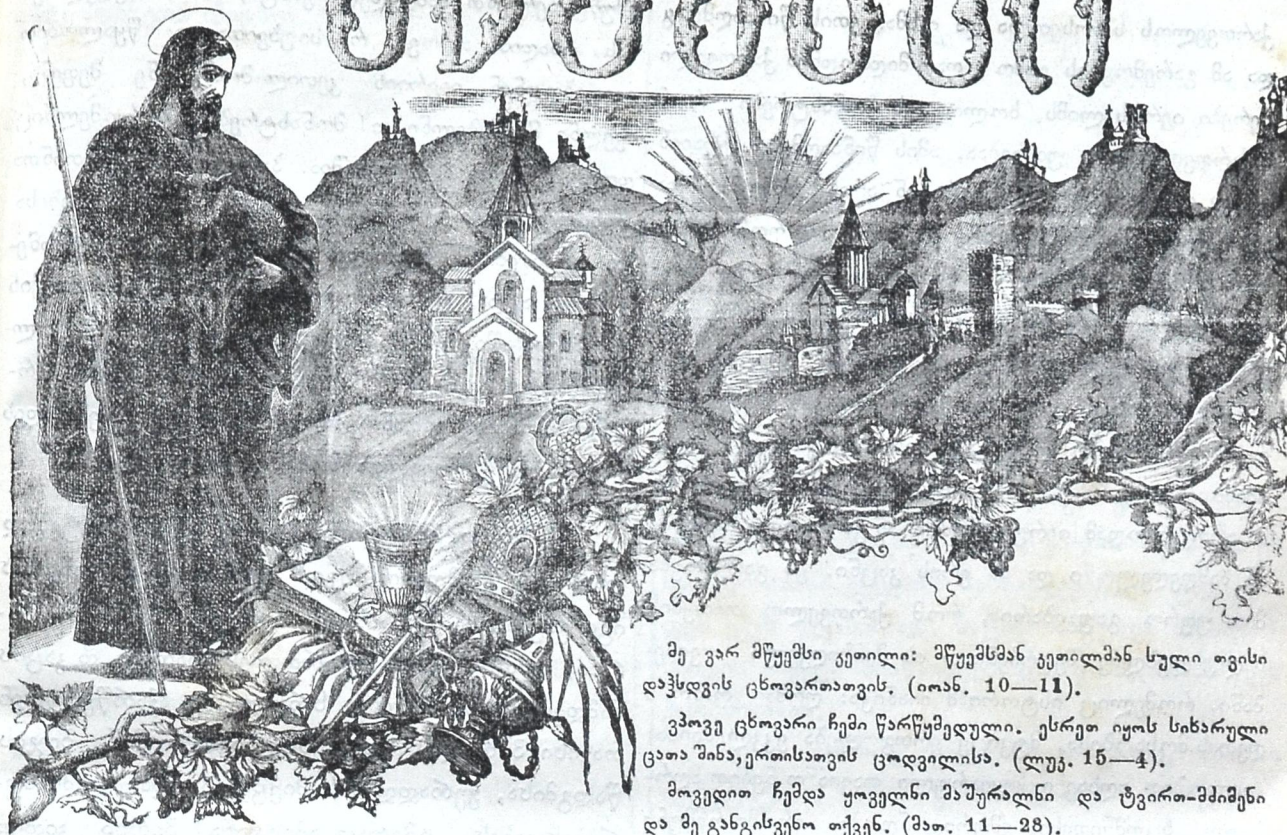 მე ვარ მწყემსი კეთილი: მწყემსმან კეთილმან სული თვისი
დაჰსდვის ცხოვართათვის. (იოან. 10—11).
ვპოვე ცხოვარი ჩემი წარწყმედული. ესრეთ იყოს სიხარული
ცათა შინა,ერთისათვის ცოდვილისა. (ლუკ. 15—4).
მოვედით ჩემდა ყოველნი მაშურალნი და ტვირთ-მძიმენი
და მე განგისვენო თქვენ. (მათ. 11—28).